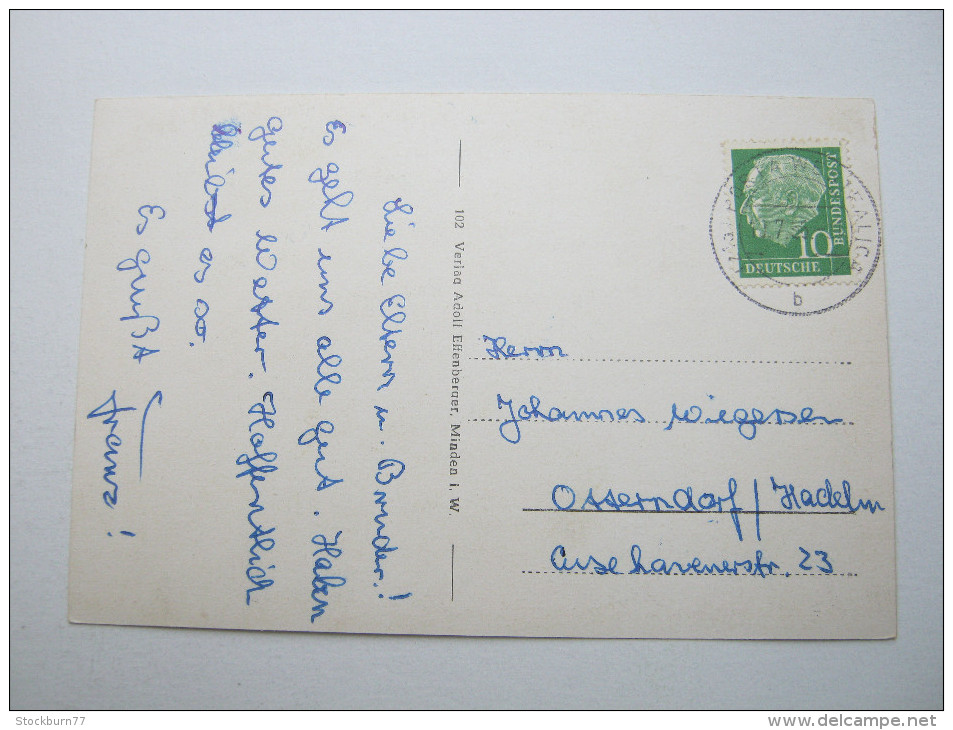 Liebe Eltern u. Bruder!
Es geht uns alle gut. Haben
gutes Wetter. Hoffentlich
bleibt es so.
Es grüßt
Franz!
102 Verlag Adolf Effenberger, Minden i. W.
10
BUNDESPOST
DEUTSCHE
b
Herrn
Johannes Wiegersen
Otterndorf / Hadeln
Cuxhavenerstr. 23
Stockburn77
www.delcampe.net